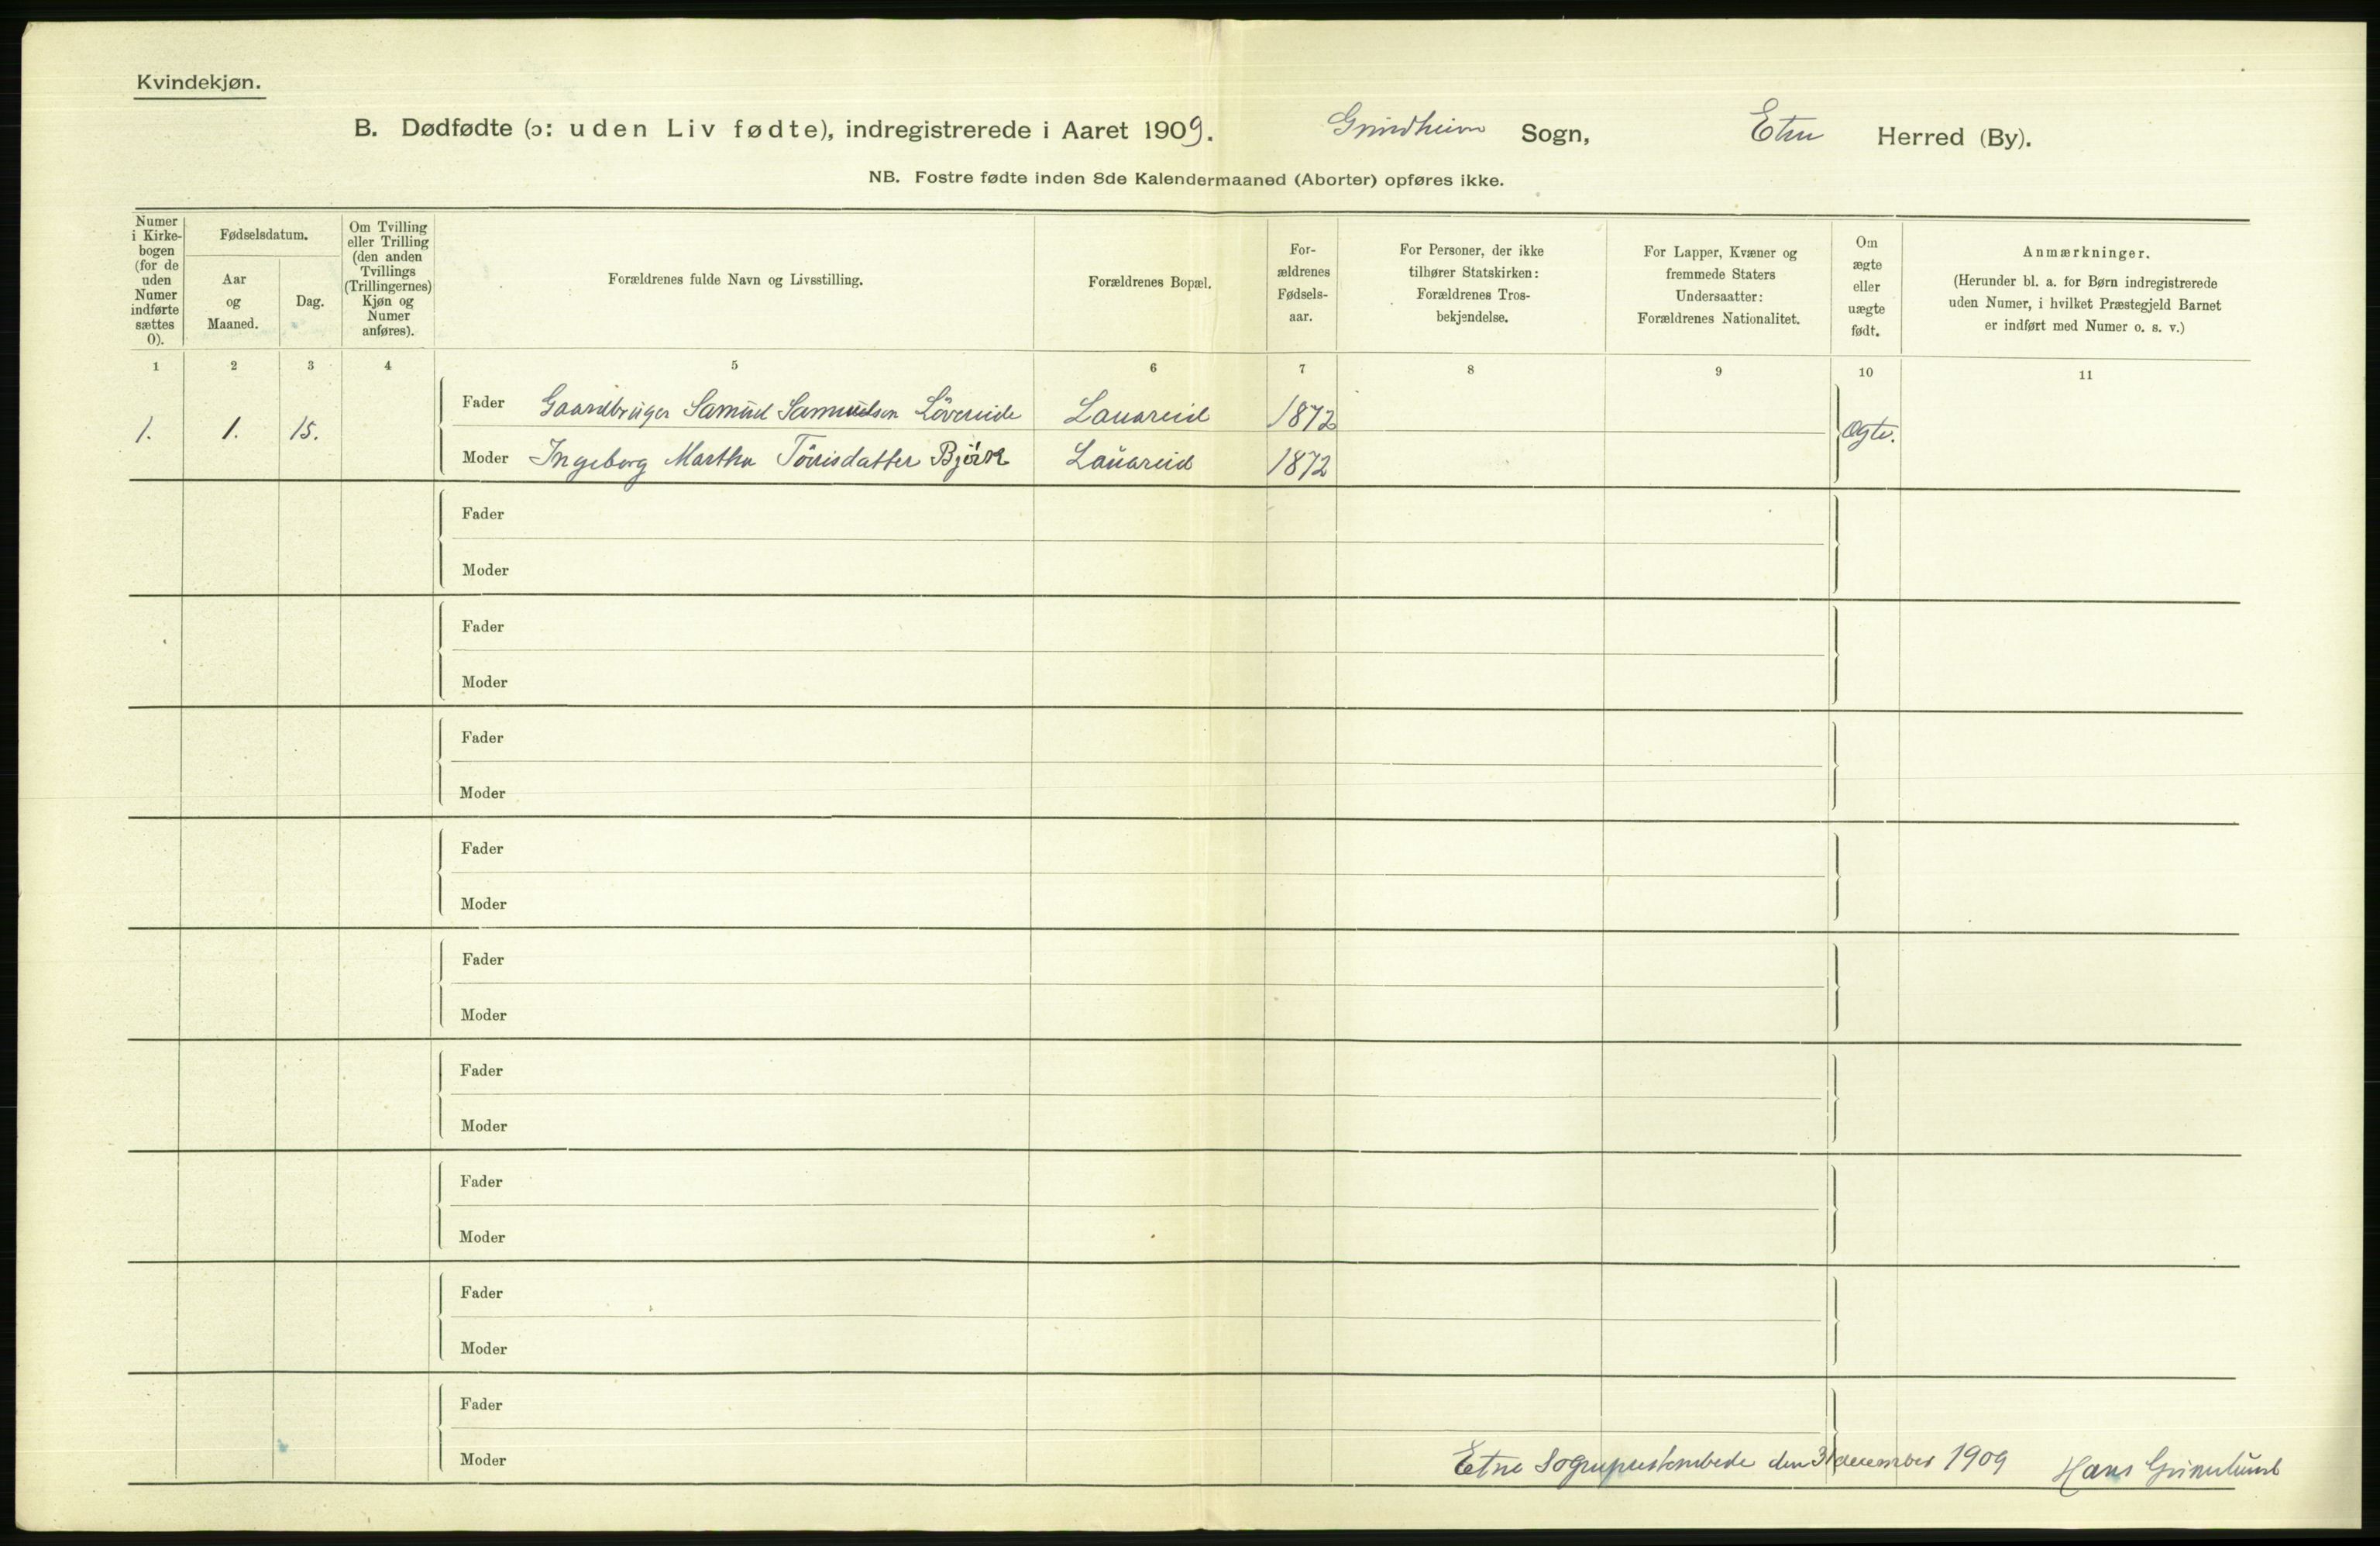 Kvindekjøn.
B. Dødfødte (ɔ: uden Liv fødte), indregistrerede i Aaret 1909. Grindheim Sogn, Etne Herred (By).
NB. Fostre fødte inden 8de Kalendermaaned (Aborter) opføres ikke.
Numer i Kirke-bogen (for de uden Numer indførte sættes 0).
Fødselsdatum.
Aar og Maaned.
Dag.
Om Tvilling eller Trilling (den anden Tvillings (Trillingernes) Kjøn og Numer anføres).
Forældrenes fulde Navn og Livsstilling.
Forældrenes Bopæl.
For-ældrenes Fødsels-aar.
For Personer, der ikke tilhører Statskirken: Forældrenes Tros-bekjendelse.
For Lapper, Kvæner og fremmede Staters Undersaatter: Forældrenes Nationalitet.
Om ægte eller uægte født.
Anmærkninger.
(Herunder bl. a. for Børn indregistrerede uden Numer, i hvilket Præstegjeld Barnet er indført med Numer o. s. v.)
1 2 3 4 5 6 7 8 9 10 11
1. 1. 15. Fader Gaardbruger Samuel Samuelsen Løvereide Lauareid 1872 Ægte.
Moder Ingeborg Martha Tørrisdatter Bjørk Lauareid 1872
Fader
Moder
Fader
Moder
Fader
Moder
Fader
Moder
Fader
Moder
Fader
Moder
Fader
Moder
Fader
Moder
Fader
Moder
Etne Sogneprestembede den 31 december 1909 Hans